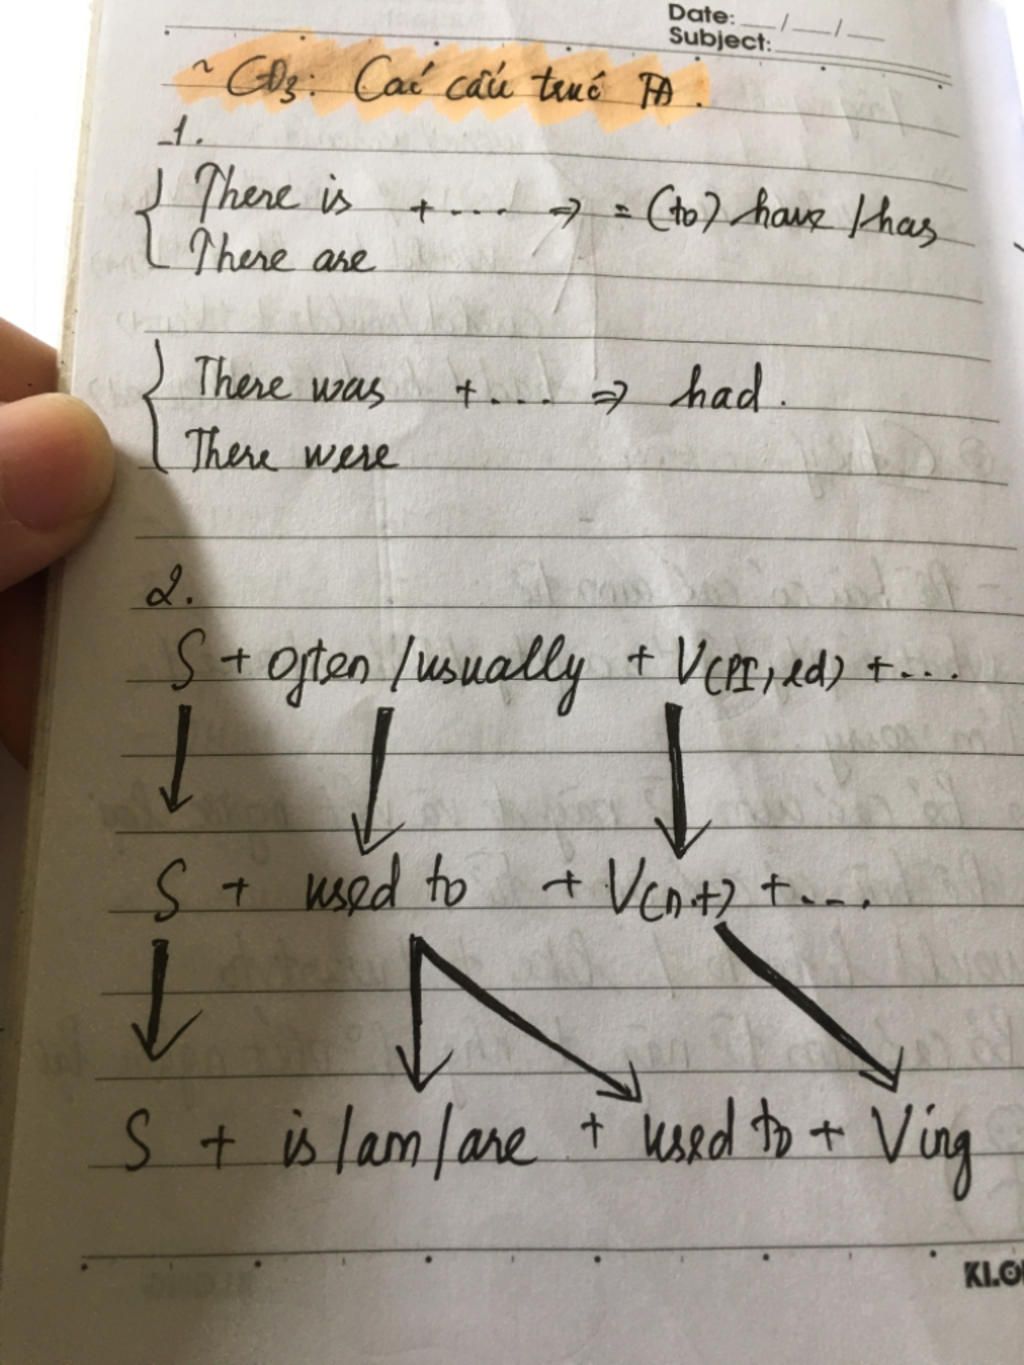 Date: __/__/__
Subject:
~ CĐ3: Các cấu trúc TA.
1.
There is
+ ... => = (to) have / has
There are
There was
+ ... => had.
There were
2.
S + often / usually + V(PI, ed) + ...
S + used to + V(n.t) + ...
S + is / am / are + used to + Ving
KLO